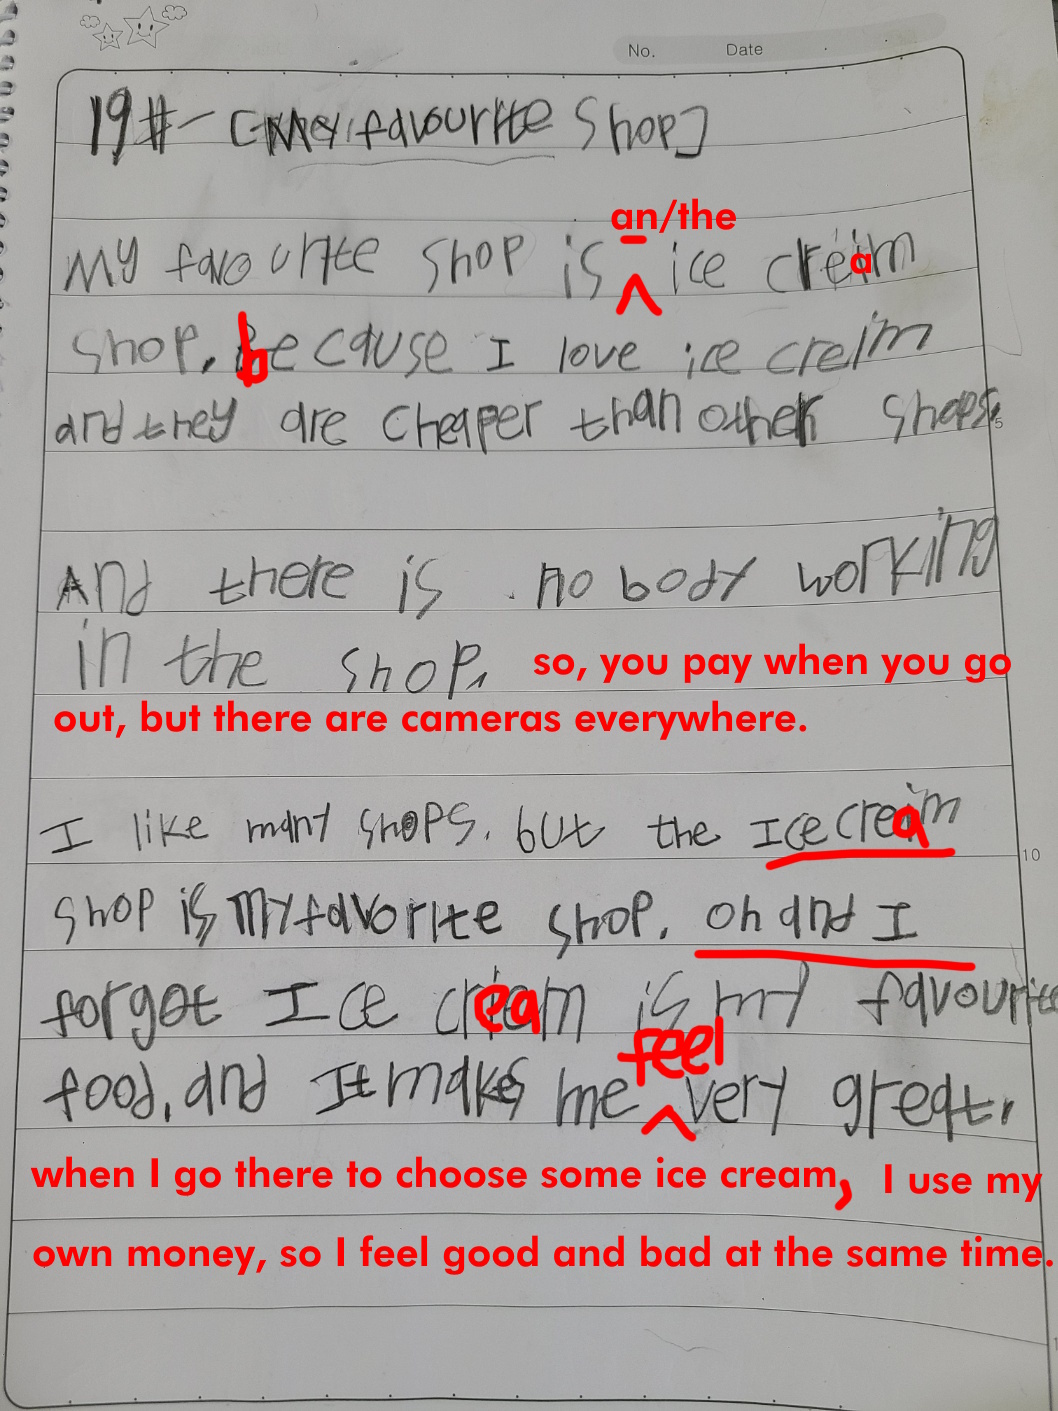 No. Date
19#- [My favourite shop]
an/the
My favourite shop is ice cream
shop. because I love ice creim
and they are cheaper than other shops.
5
And there is no body working
in the shop, so, you pay when you go
out, but there are cameras everywhere.
I like many shops. but the Ice cream
10
shop is my favorite shop. oh and I
forgot Ice cream is my favourite
feel
food, and It makes me very great,
when I go there to choose some ice cream, I use my
own money, so I feel good and bad at the same time.